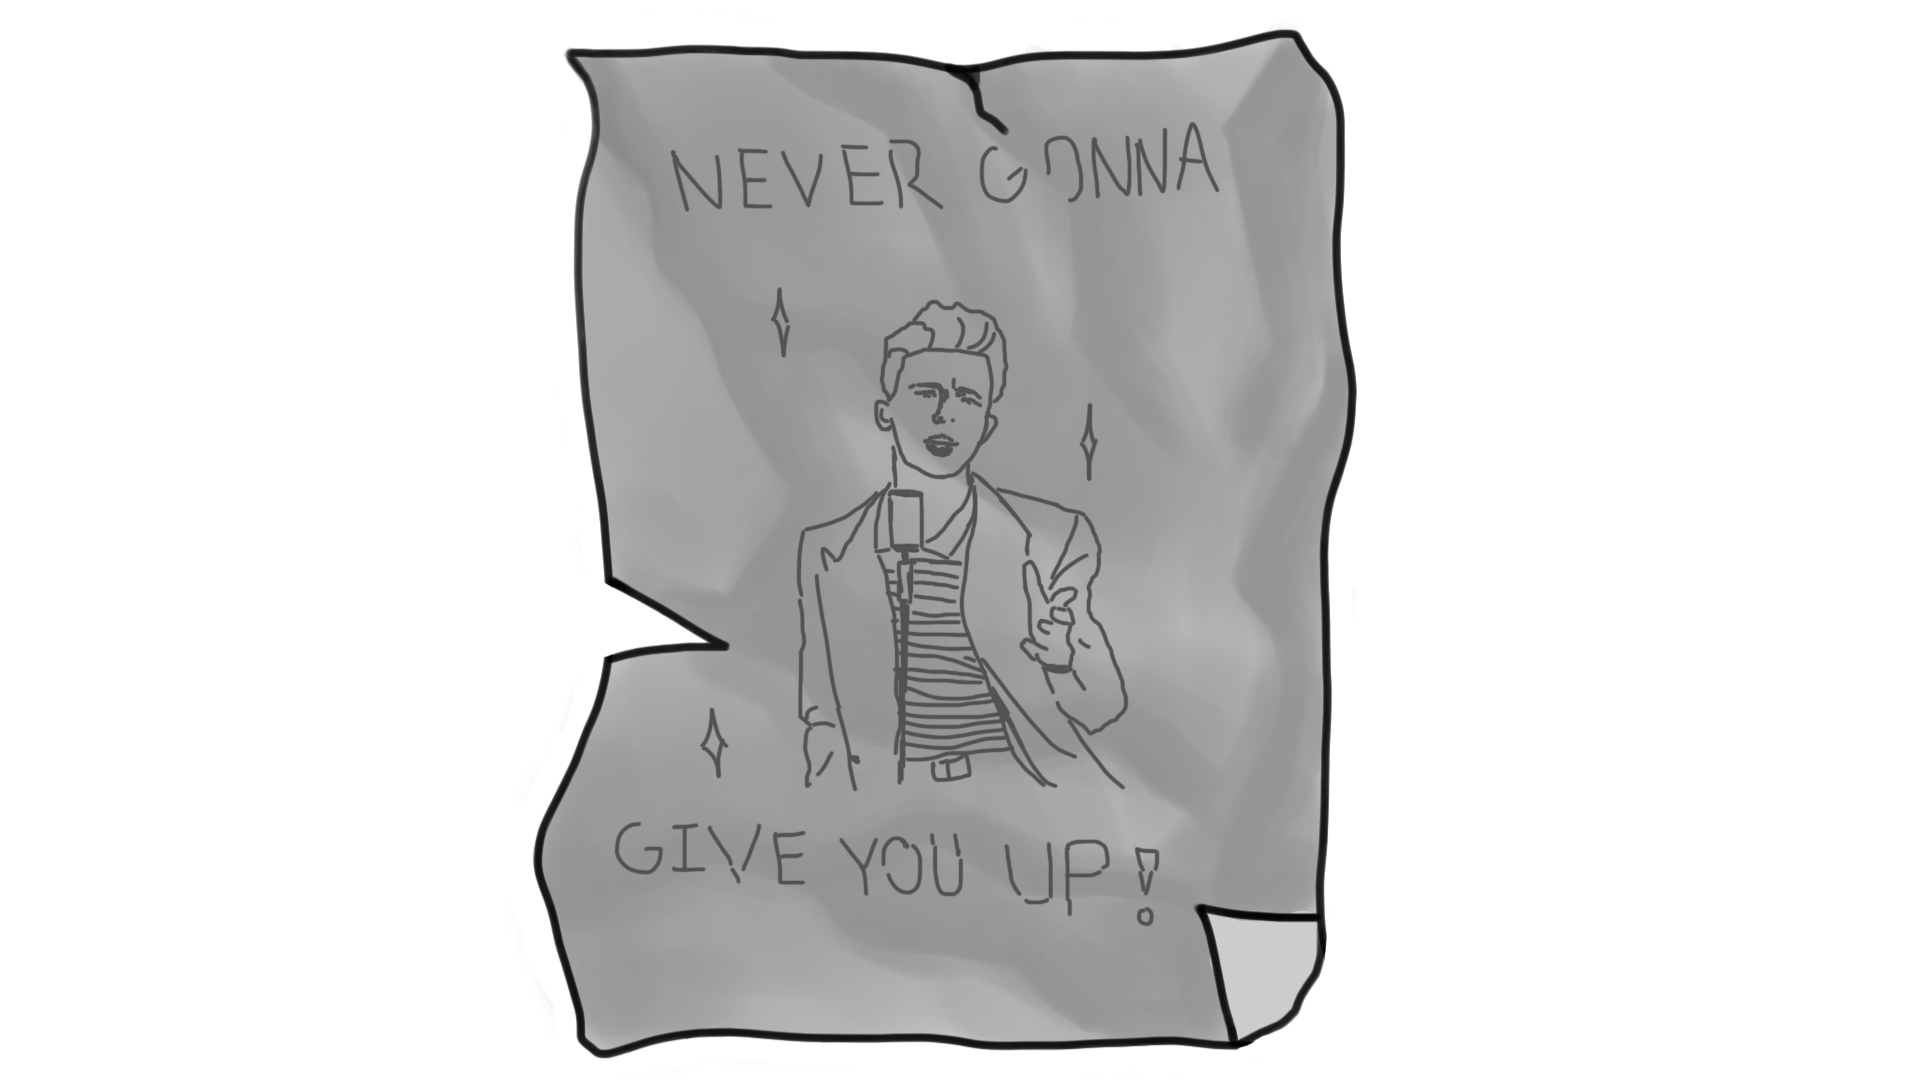 NEVER GONNA
GIVE YOU UP!